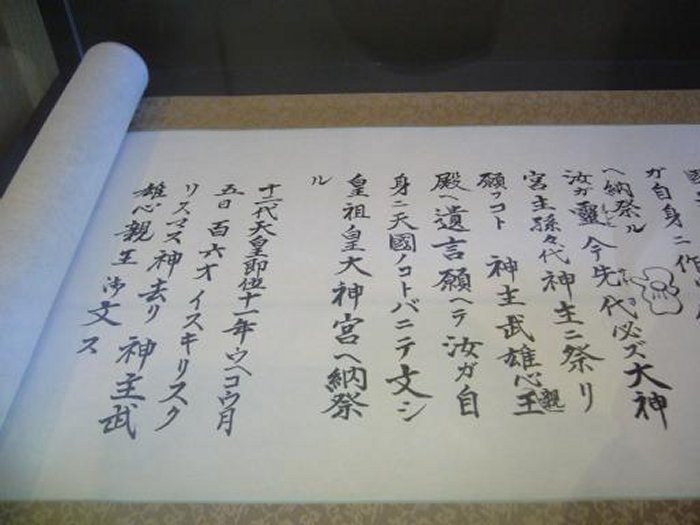 ガ自身ニ作
ヘ納祭ル
汝ガ靈今先代必ズ大神
宮主孫々代神主ニ祭リ
願フコト 神主武雄心親王
殿ヘ遺言願ヘテ汝ガ自
身ニ天國ノコトバニテ文シ
皇祖皇大神宮ヘ納祭
ル
十二代天皇即位十一年ウヘコウ月
五日 百六才 イスキリスク
リスマス神去リ 神主武
雄心親王 御文ス